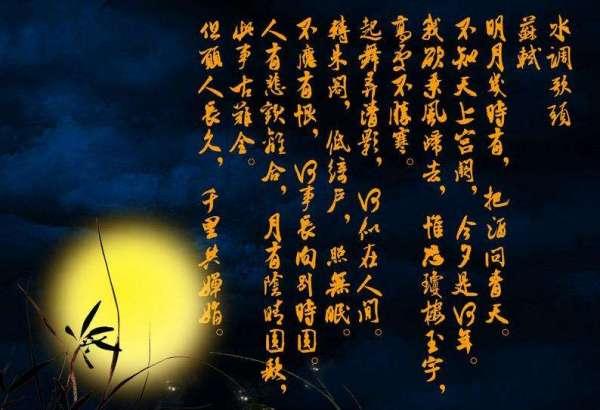 水调歌頭
蘇軾
明月幾時有，把酒問青天。
不知天上宫闕，今夕是何年。
我欲乘風歸去，惟恐瓊樓玉宇，
高處不勝寒。
起舞弄清影，何似在人間。
轉朱閣，低綺户，照無眠。
不應有恨，何事長向别時圓。
人有悲歡離合，月有陰晴圓缺，
此事古難全。
但願人長久，千里共嬋娟。